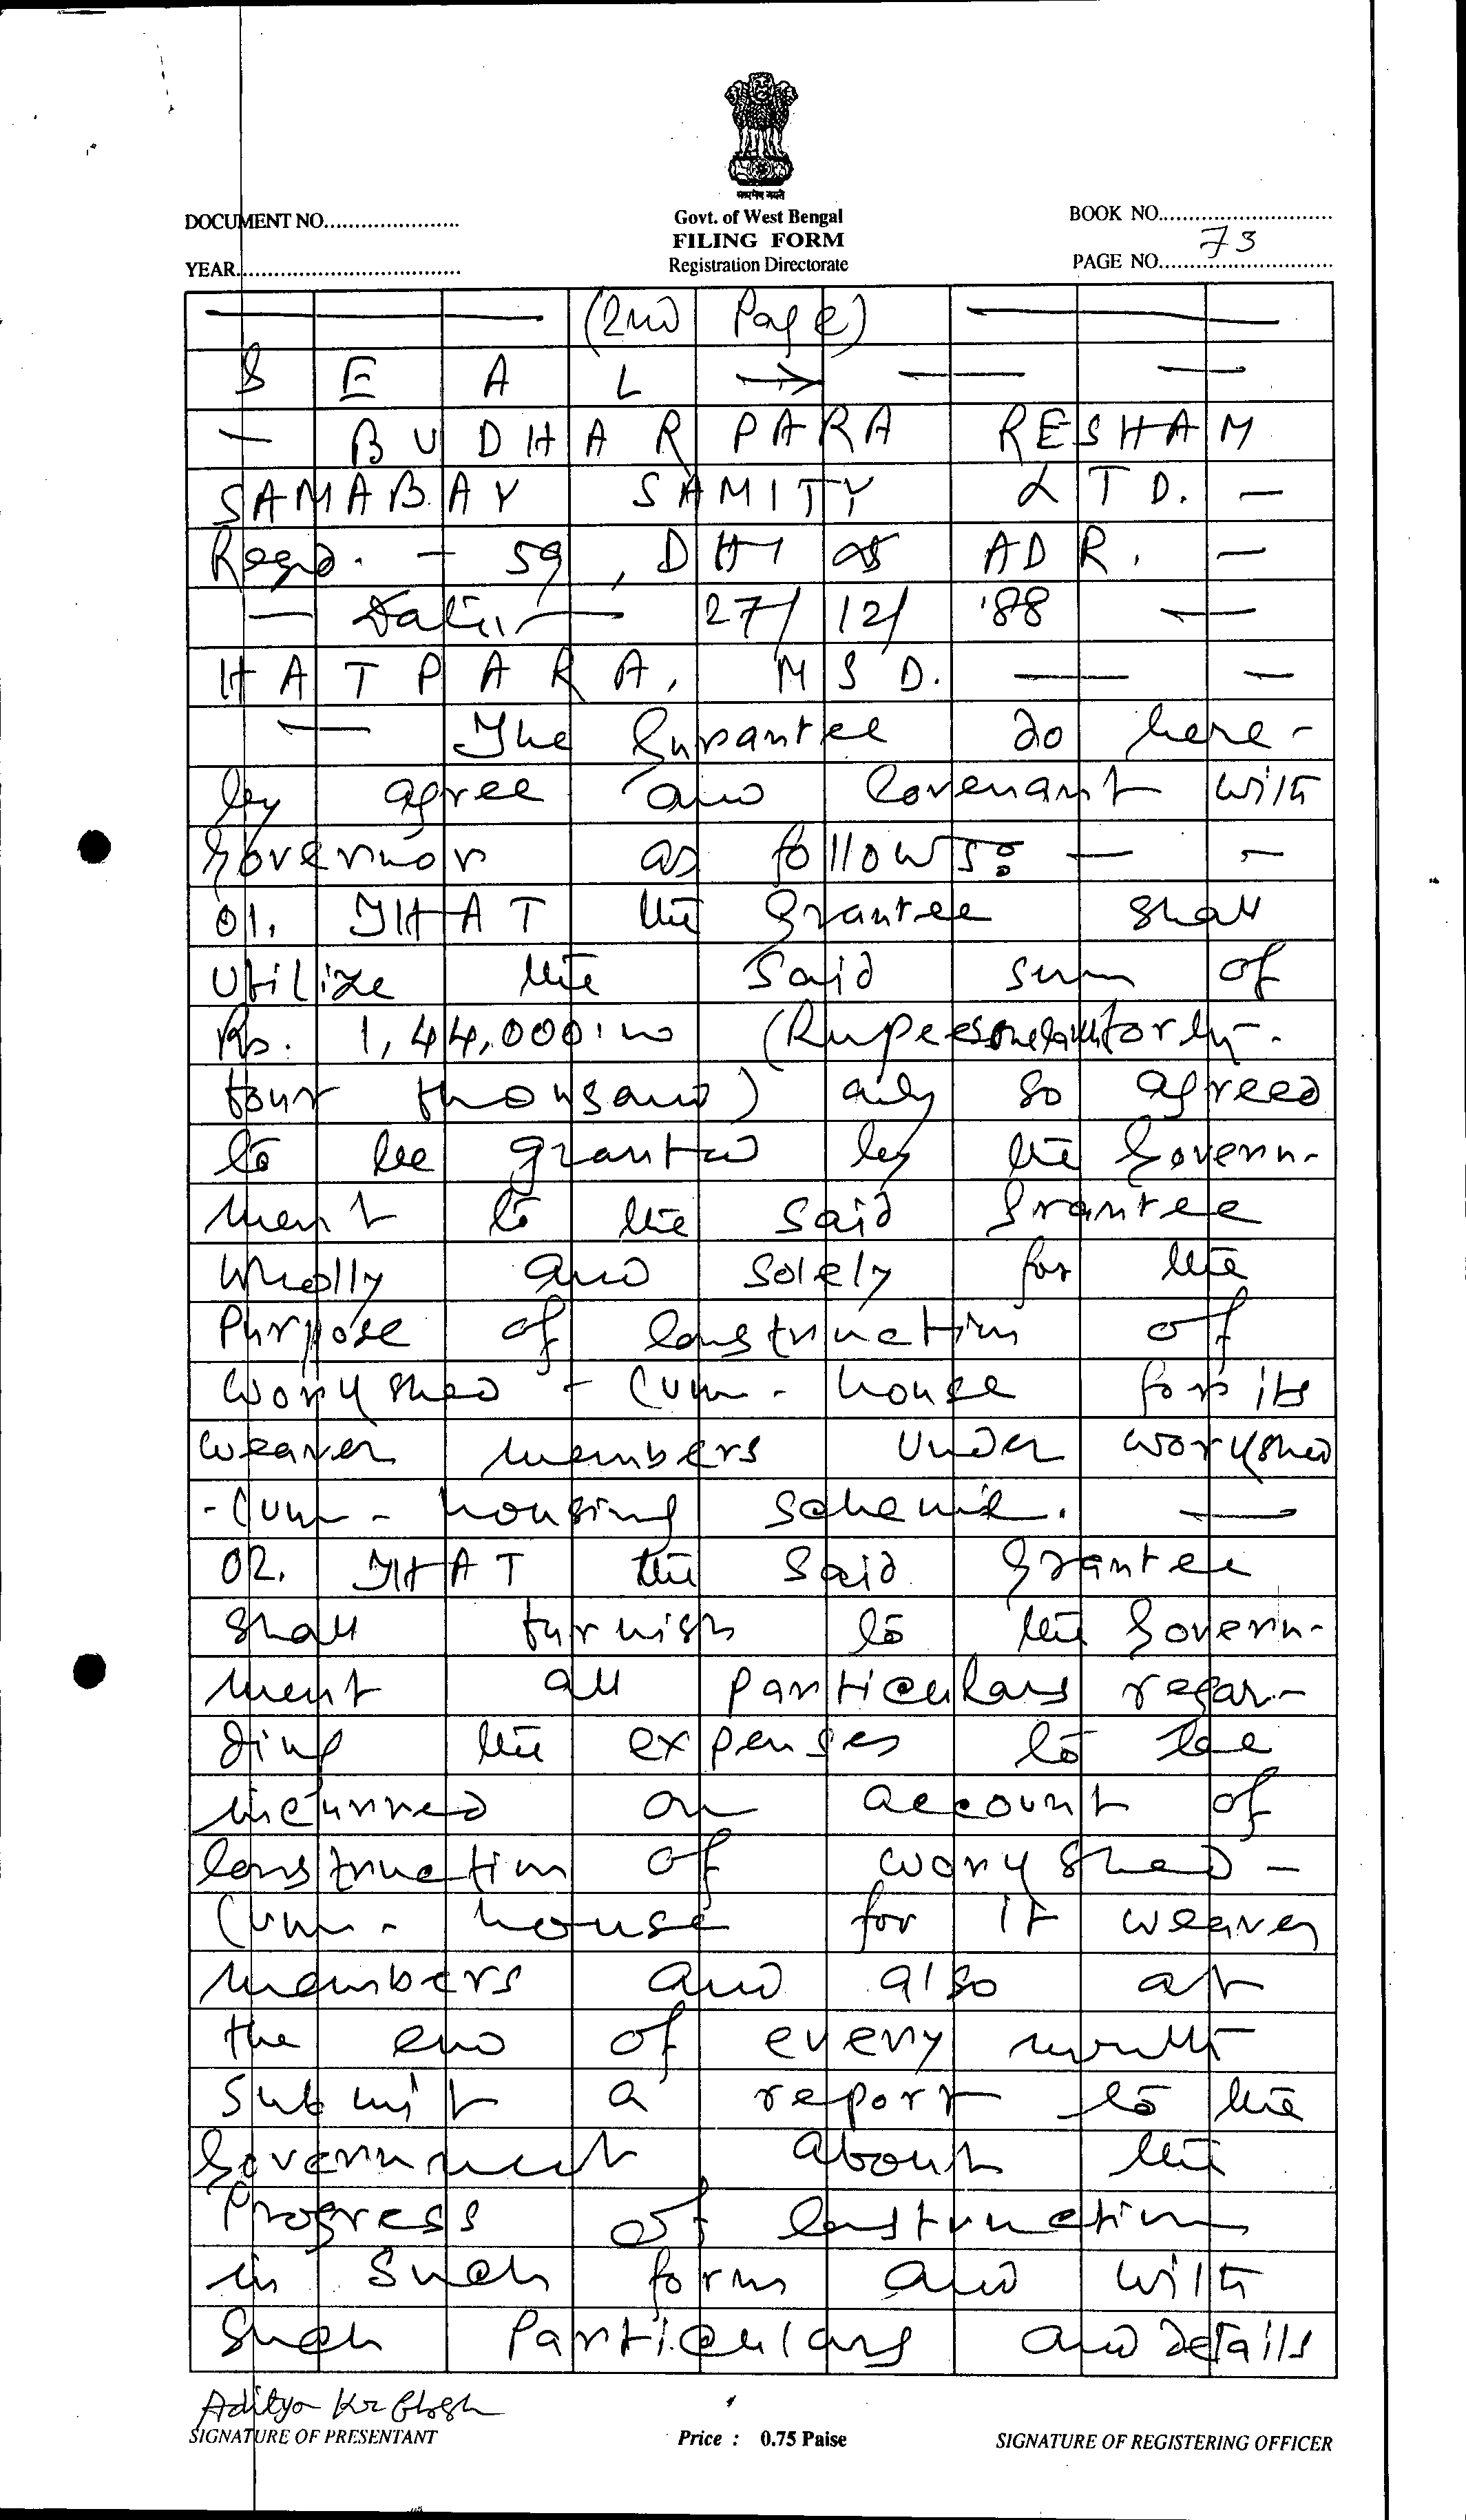 सत्यमेव जयते
DOCUMENT NO......................
Govt. of West Bengal
BOOK NO............................
FILING FORM
YEAR....................................
Registration Directorate
PAGE NO. 73
(2nd Page)
SEAL → — —
— BUDHAR PARA RESHAM
SAMABAY SAMITY LTD. —
Regd. - 59, DHT ADR. —
— Date — 27/12/'88 —
HATPARA, MSD. — —
— The Gurantee do here-
by agree and Covenant with
Governor as follows: — —
01. THAT the Grantee shall
Utilize the said sum of
Rs. 1,44,000.00 (Rupees one lakh forty-
four thousand) only so agreed
to be granted by the Govern-
ment to the said Grantee
Wholly and solely for the
Purpose of Construction of
Workshed - Cum - house for its
weaver members under workshed
-Cum - housing scheme. —
02. THAT the said Grantee
shall furnish to the Govern-
ment all particulars regar-
ding the expenses to be
incurred on account of
Construction of workshed -
Cum - house for it weaver
members and also at
the end of every month
Submit a report to the
Government about the
Progress of Construction
in such form and with
Such Particulars and details
Aditya Kr Ghosh
SIGNATURE OF PRESENTANT
Price : 0.75 Paise
SIGNATURE OF REGISTERING OFFICER